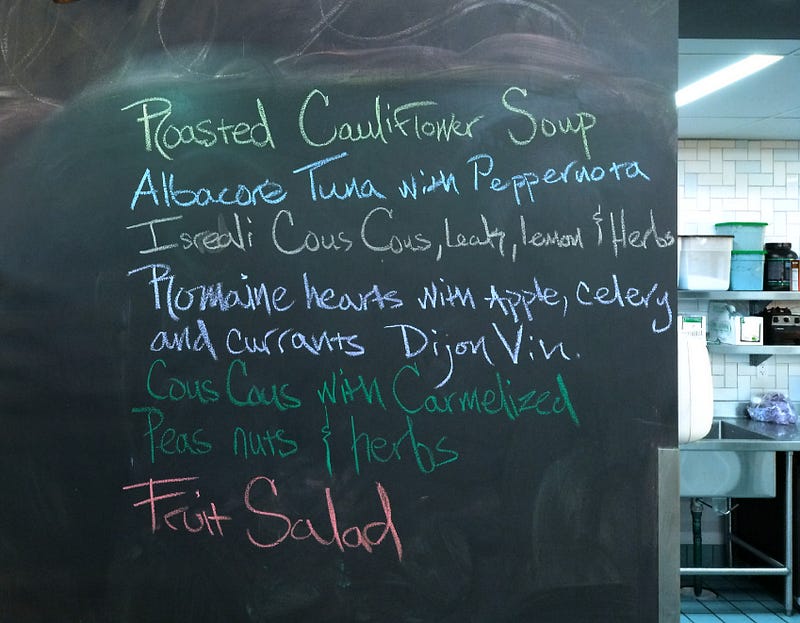 Roasted Cauliflower Soup
Albacore Tuna with Peppernota
Isreali Cous Cous, Leak, lemon & Herbs
Romaine hearts with Apple, celery
and currants Dijon Vin.
Cous Cous with Carmelized
Peas nuts & herbs
Fruit Salad